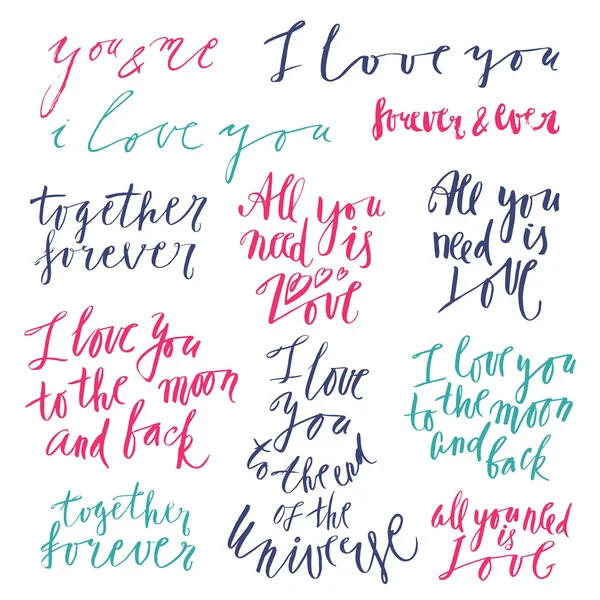 you & me
I love you
i love you
forever & ever
together
forever
All you
need is
Love
All you
need is
LOVE
I love you
to the moon
and back
I love
you
to the end
of the
Universe
I love you
to the moon
and back
together
forever
all you need
is
Love